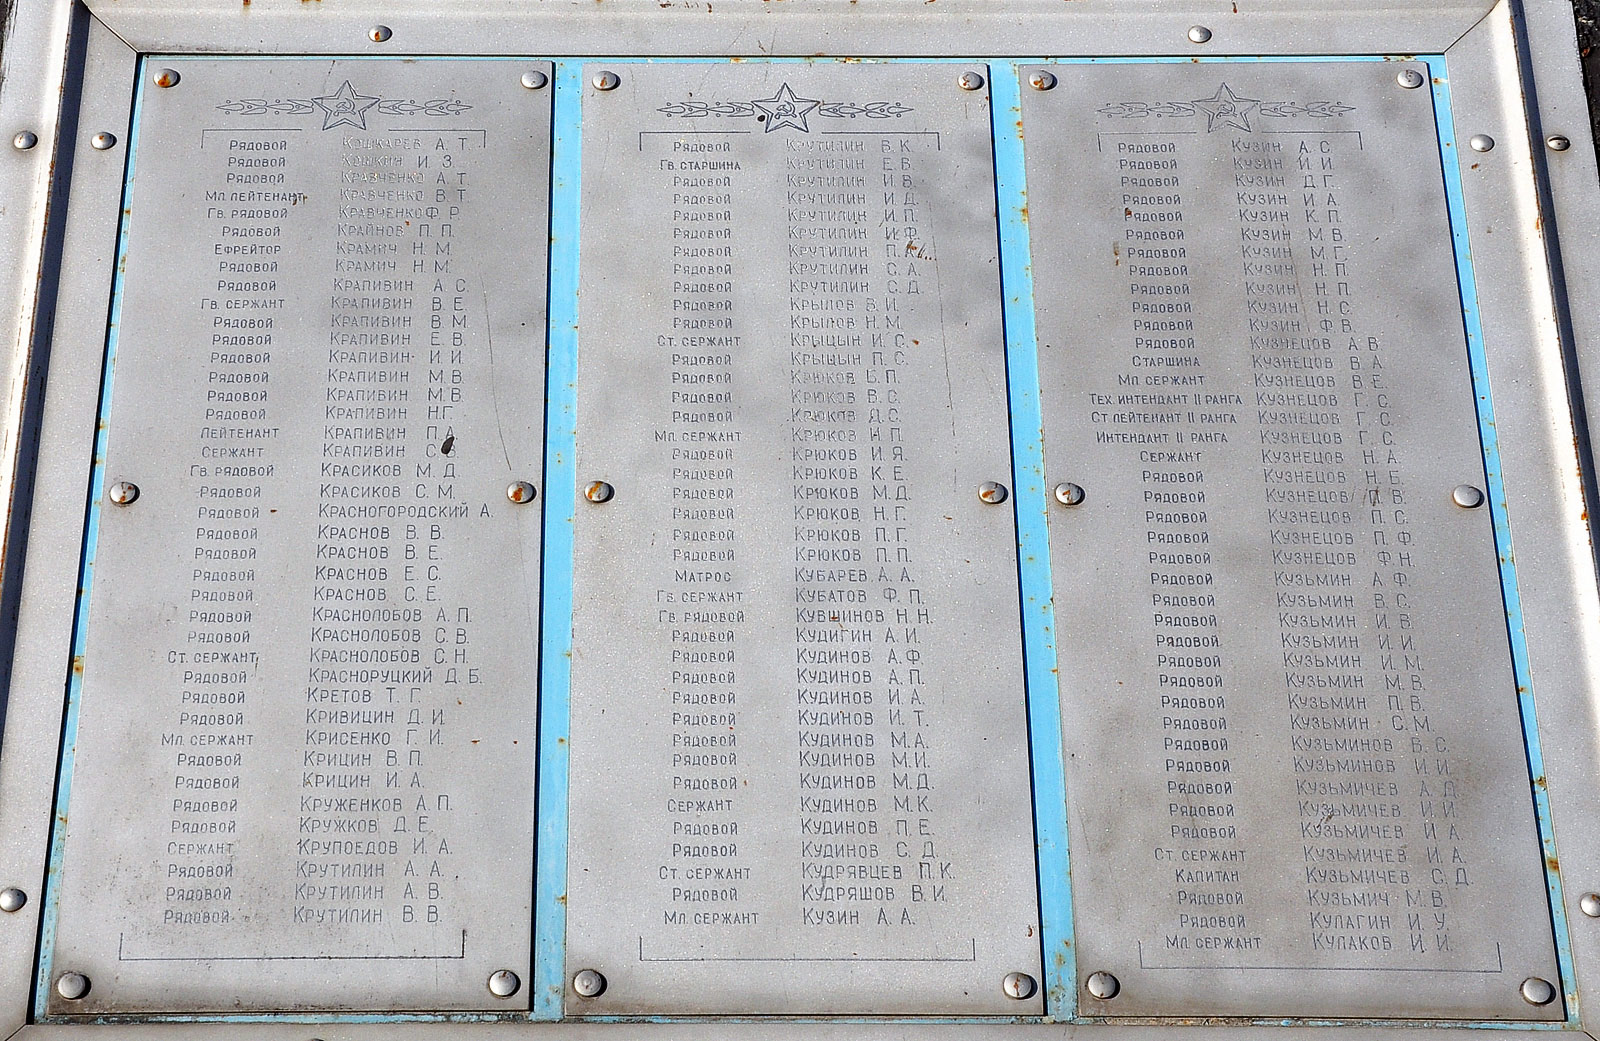 Рядовой Кошкарев А. Т.
Рядовой Кошкин И. З.
Рядовой Кравченко А. Т.
Мл. лейтенант Кравченко В. Т.
Гв. рядовой Кравченко Ф. Р.
Рядовой Крайнов П. П.
Ефрейтор Крамич Н. М.
Рядовой Крамич Н. М.
Рядовой Крапивин А. С.
Гв. сержант Крапивин В. Е.
Рядовой Крапивин В. М.
Рядовой Крапивин Е. В.
Рядовой Крапивин И. И.
Рядовой Крапивин М. В.
Рядовой Крапивин М. В.
Рядовой Крапивин Н. Г.
Лейтенант Крапивин П. А.
Сержант Крапивин С. В.
Гв. рядовой Красиков М. Д.
Рядовой Красиков С. М.
Рядовой Красногородский А.
Рядовой Краснов В. В.
Рядовой Краснов В. Е.
Рядовой Краснов Е. С.
Рядовой Краснов С. Е.
Рядовой Краснолобов А. П.
Рядовой Краснолобов С. В.
Ст. сержант Краснолобов С. Н.
Рядовой Красноруцкий Д. Б.
Рядовой Кретов Т. Г.
Рядовой Кривицин Д. И.
Мл. сержант Крисенко Г. И.
Рядовой Крицин В. П.
Рядовой Крицин И. А.
Рядовой Круженков А. П.
Рядовой Кружков Д. Е.
Сержант Крупоедов И. А.
Рядовой Крутилин А. А.
Рядовой Крутилин А. В.
Рядовой Крутилин В. В.
Рядовой Крутилин В. К.
Гв. старшина Крутилин Е. В.
Рядовой Крутилин И. В.
Рядовой Крутилин И. Д.
Рядовой Крутилин И. П.
Рядовой Крутилин И. Ф.
Рядовой Крутилин П. А.
Рядовой Крутилин С. А.
Рядовой Крутилин С. Д.
Рядовой Крылов В. И.
Рядовой Крылов Н. М.
Ст. сержант Крыцын И. С.
Рядовой Крыцын П. С.
Рядовой Крюков Б. П.
Рядовой Крюков В. С.
Рядовой Крюков Д. С.
Мл. сержант Крюков И. П.
Рядовой Крюков И. Я.
Рядовой Крюков К. Е.
Рядовой Крюков М. Д.
Рядовой Крюков Н. Г.
Рядовой Крюков П. Г.
Рядовой Крюков П. П.
Матрос Кубарев А. А.
Гв. сержант Кубатов Ф. П.
Гв. рядовой Кувшинов Н. Н.
Рядовой Кудигин А. И.
Рядовой Кудинов А. Ф.
Рядовой Кудинов А. П.
Рядовой Кудинов И. А.
Рядовой Кудинов И. Т.
Рядовой Кудинов М. А.
Рядовой Кудинов М. И.
Рядовой Кудинов М. Д.
Сержант Кудинов М. К.
Рядовой Кудинов П. Е.
Рядовой Кудинов С. Д.
Ст. сержант Кудрявцев П. К.
Рядовой Кудряшов В. И.
Мл. сержант Кузин А. А.
Рядовой Кузин А. С.
Рядовой Кузин И. И.
Рядовой Кузин Д. Г.
Рядовой Кузин И. А.
Рядовой Кузин К. П.
Рядовой Кузин М. В.
Рядовой Кузин М. Г.
Рядовой Кузин Н. П.
Рядовой Кузин Н. П.
Рядовой Кузин Н. С.
Рядовой Кузин Ф. В.
Рядовой Кузнецов А. В.
Старшина Кузнецов В. А.
Мл. сержант Кузнецов В. Е.
Тех. интендант II ранга Кузнецов Г. С.
Ст лейтенант II ранга Кузнецов Г. С.
Интендант II ранга Кузнецов Г. С.
Сержант Кузнецов Н. А.
Рядовой Кузнецов Н. Е.
Рядовой Кузнецов П. В.
Рядовой Кузнецов П. С.
Рядовой Кузнецов П. Ф.
Рядовой Кузнецов Ф. Н.
Рядовой Кузьмин А. Ф.
Рядовой Кузьмин В. С.
Рядовой Кузьмин И. В.
Рядовой Кузьмин И. И.
Рядовой Кузьмин И. М.
Рядовой Кузьмин М. В.
Рядовой Кузьмин П. В.
Рядовой Кузьмин С. М.
Рядовой Кузьминов В. С.
Рядовой Кузьминов И. И.
Рядовой Кузьмичев А. Д.
Рядовой Кузьмичев И. И.
Рядовой Кузьмичев И. А.
Ст. сержант Кузьмичев И. А.
Капитан Кузьмичев С. Д.
Рядовой Кузьмич М. В.
Рядовой Кулагин И. У.
Мл. сержант Кулаков И. И.